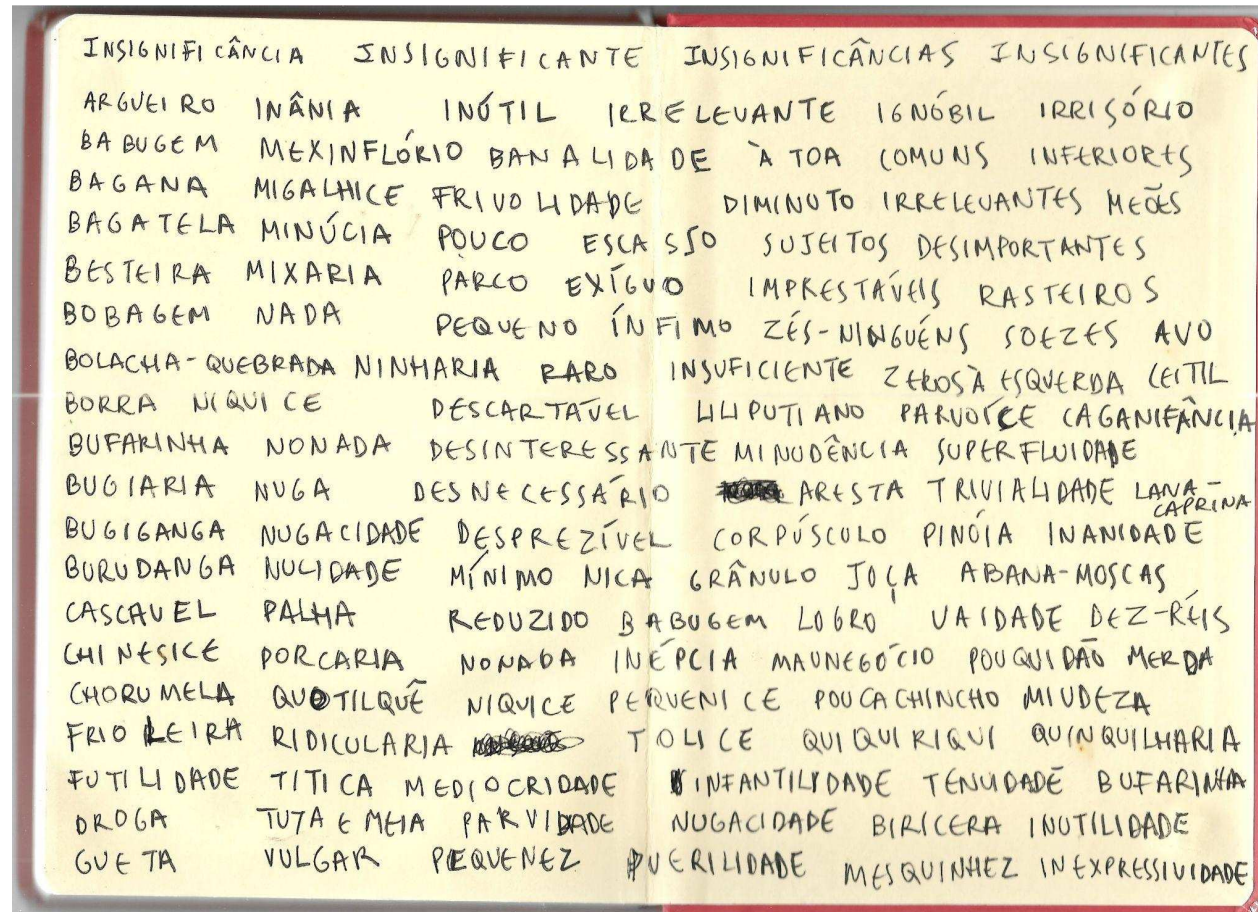 INSIGNIFICÂNCIA INSIGNIFICANTE INSIGNIFICÂNCIAS INSIGNIFICANTES
ARGUEIRO INÂNIA INÚTIL IRRELEVANTE IGNÓBIL IRRISÓRIO
BABUGEM MEXINFLÓRIO BANALIDADE À TOA COMUNS INFERIORES
BAGANA MIGALHICE FRIVOLIDADE DIMINUTO IRRELEVANTES MEÕES
BAGATELA MINÚCIA POUCO ESCASSO SUJEITOS DESIMPORTANTES
BESTEIRA MIXARIA PARCO EXÍGUO IMPRESTÁVEIS RASTEIROS
BOBAGEM NADA PEQUENO ÍNFIMO ZÉS-NINGUÉNS SOEZES AVO
BOLACHA-QUEBRADA NINHARIA RARO INSUFICIENTE ZEROS À ESQUERDA CEITIL
BORRA NIQUICE DESCARTÁVEL LILIPUTIANO PARVOÍCE CAGANIFÂNCIA
BUFARINHA NONADA DESINTERESSANTE MINUDÊNCIA SUPERFLUIDADE
BUGIARIA NUGA DESNECESSÁRIO ARESTA TRIVIALIDADE LANA-CAPRINA
BUGIGANGA NUGACIDADE DESPREZÍVEL CORPÚSCULO PINÓIA INANIDADE
BURUDANGA NULIDADE MÍNIMO NICA GRÂNULO JOÇA ABANA-MOSCAS
CASCAVEL PALHA REDUZIDO BABUGEM LOGRO VAIDADE DEZ-RÉIS
CHINESICE PORCARIA NONADA INÉPCIA MAUNEGÓCIO POUQUIDÃO MERDA
CHORUMELA QUOTILQUÊ NIQUICE PEQUENICE POUCACHINCHO MIUDEZA
FRIOLEIRA RIDICULARIA TOLICE QUIQUIRIQUI QUINQUILHARIA
FUTILIDADE TITICA MEDIOCRIDADE INFANTILIDADE TENUIDADE BUFARINHA
DROGA TUTA E MEIA PARVIDADE NUGACIDADE BIRICERA INUTILIDADE
GUETA VULGAR PEQUENEZ PUERILIDADE MESQUINHEZ INEXPRESSIVIDADE